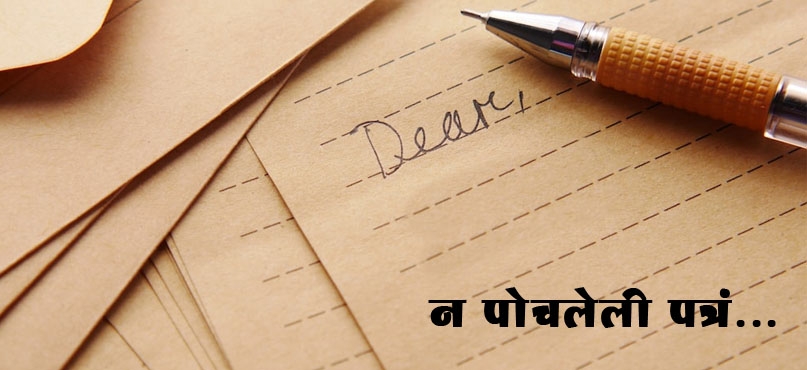 Dear,
न पोचलेली पत्रं...